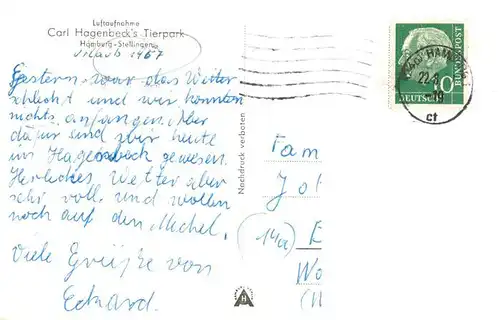 Luftaufnahme
Carl Hagenbeck's Tierpark
Hamburg-Stellingen
Urlaub 1957
Gestern war das Wetter
schlecht und wir konnten
nichts anfangen. Aber
dafür sind wir heute
in Hagenbeck gewesen.
Herliches Wetter aber
sehr voll, und wollen
noch auf den Michel.
Viele Grüße von
Eckard.
Nachdruck verboten
Fam
Joh
(14a) E
Wo
DEUTSCHE
BUNDESPOST
10
HAMBURG
22.8.
19
ct